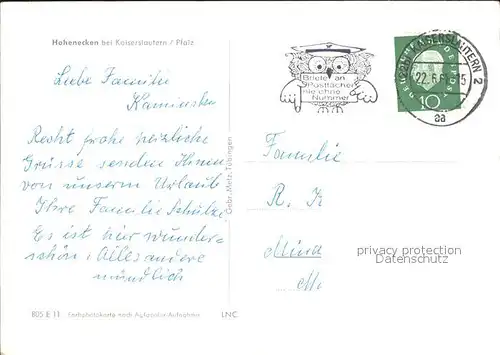 Hohenecken bei Kaiserslautern / Pfalz
Liebe Familie
Kaminsken
Recht frohe herzliche
Grüsse senden Ihnen
von unserem Urlaub
Ihre Familie Schulze
Es ist hier wunder-
schön. Alles andere
mündlich
805 E 11 Farbphotokarte nach Agfacolor-Aufnahme LNC
Gebr. Metz, Tübingen
Briefe an
Postfächer
nie ohne
Nummer
KAISERSLAUTERN 2
22.6.6
15
aa
10
Familie
R. K
privacy protection
Datenschutz